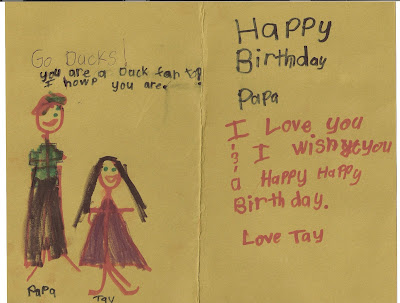 Go Ducks!
you are a Duck fan
I howp you are.
Papa
Tay
Happy
Birthday
Papa
I Love you
I wish you
a Happy Happy
Birthday.
Love Tay